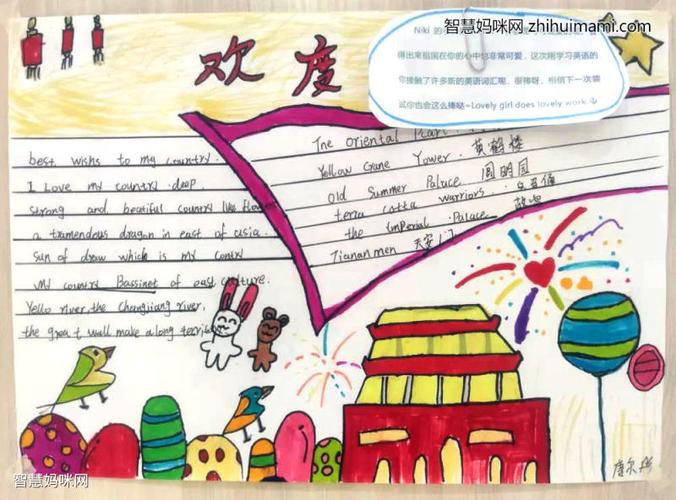 智慧妈咪网 zhihuimami.com
Niki 的
得出来祖国在你的心中也非常可爱，这次刚学习英语的
你接触了许多新的英语词汇呢，很棒呀，相信下一次尝
试你也会这么棒哒~Lovely girl does lovely work
欢度
best wishs to my country.
I Love my country deep.
strong and beatiful country like flower
a tramendous dragon in east of asia.
sun of draw which is my contry
My country Bassinet of east culture.
Yello river, the Changjiang river,
the great wall make a long territory
The Oriental Pearl
Yellow Crane Tower. 黄鹤楼
Old Summer Palace 圆明园
terra cotta warriors. 兵马俑
the Imperial Palace 故宫
Tiananmen 天安门
智慧妈咪网